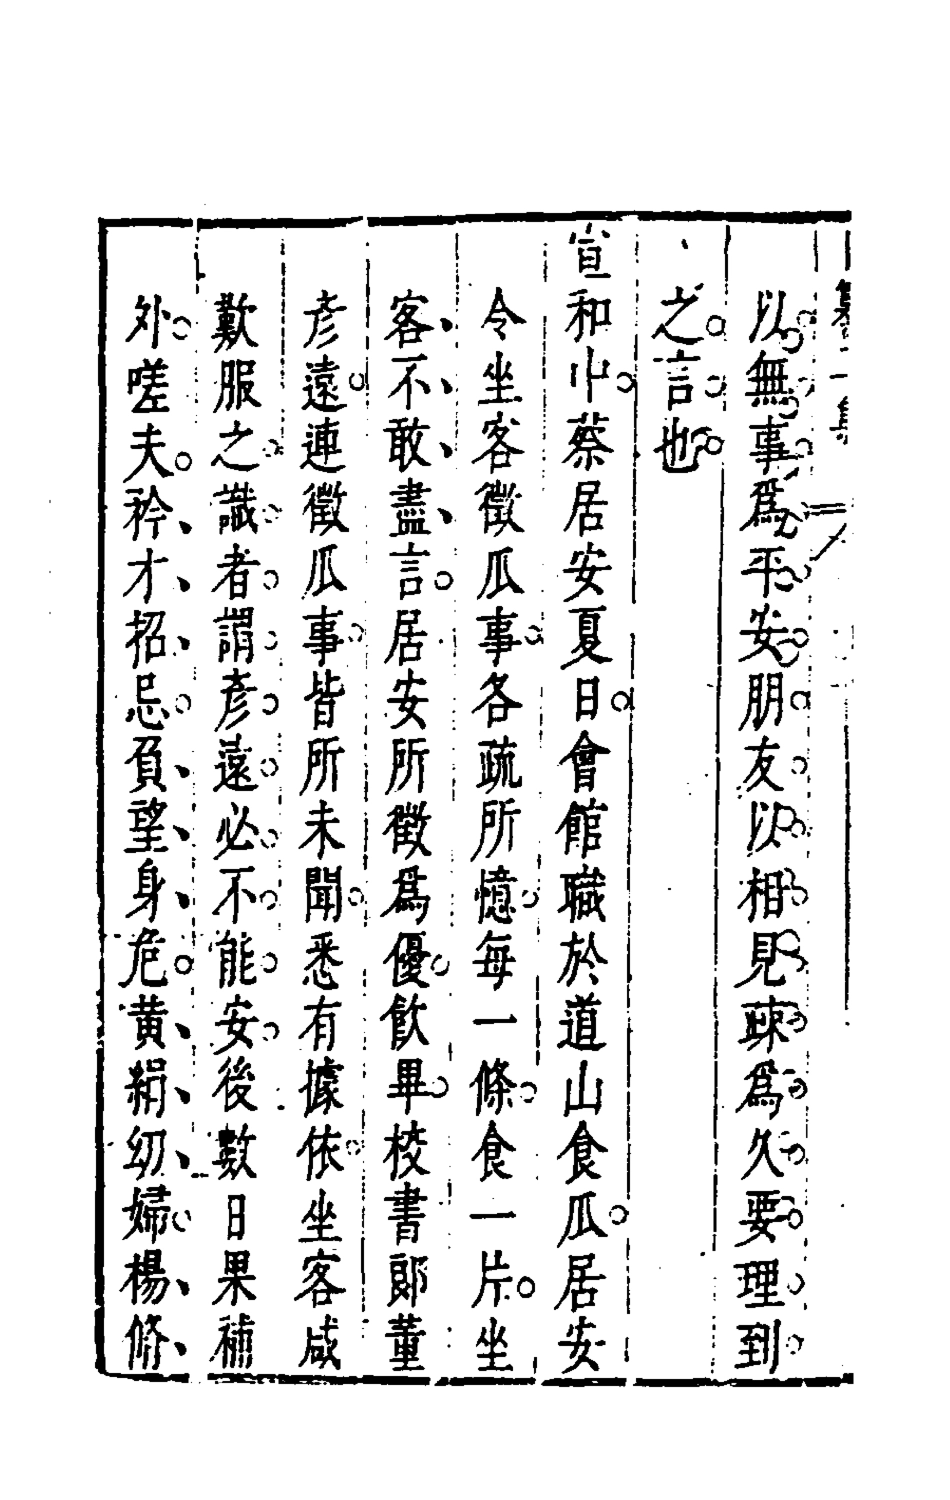 以無事爲平安朋友以相見疎爲久要理到
之言也
宣和中蔡居安夏日會館職於道山食瓜居安
令坐客徵瓜事各疏所憶每一條食一片坐
客不敢盡言居安所徵爲優飲畢校書郞董
彦遠連徵瓜事皆所未聞悉有據依坐客咸
歎服之識者謂彦遠必不能安後數日果補
外嗟夫矜才招忌負望身危黄絹幼婦楊脩